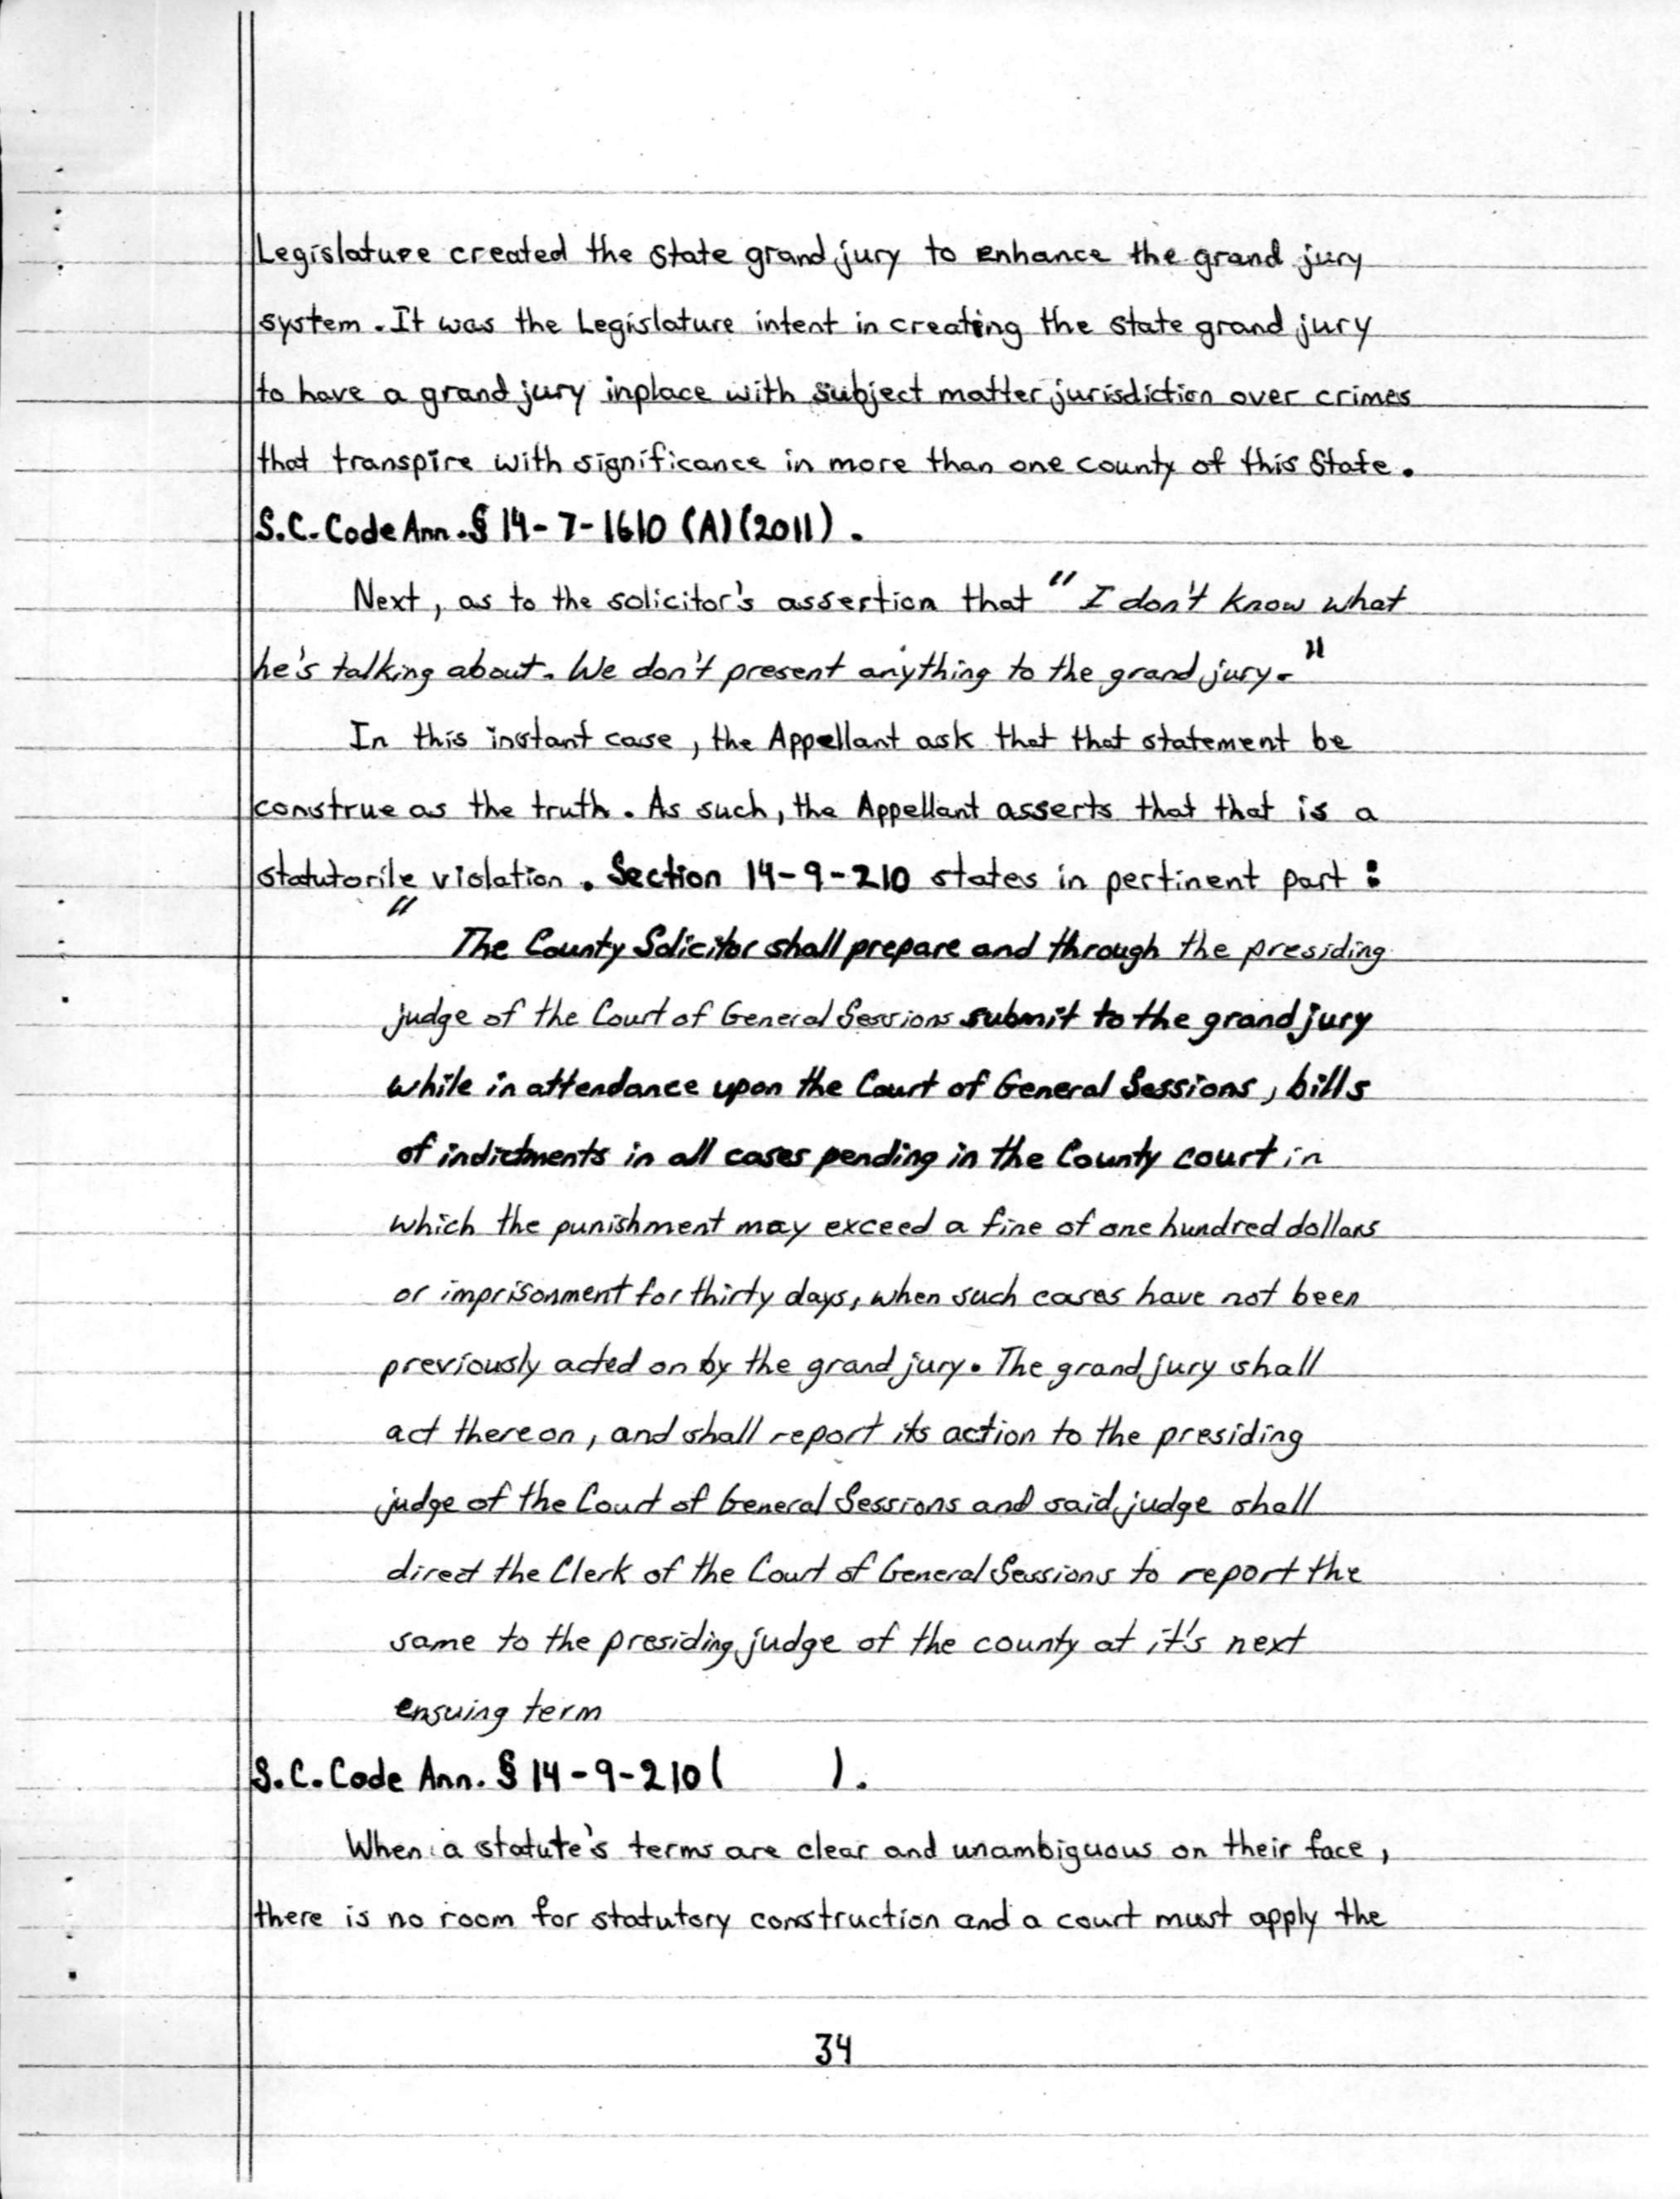 Legislature created the State grand jury to enhance the grand jury
system. It was the Legislature intent in creating the state grand jury
to have a grand jury inplace with subject matter jurisdiction over crimes
that transpire with significance in more than one county of this State.
S.C. Code Ann. § 14-7-1610 (A) (2011).
Next, as to the solicitor's assertion that "I don't know what
he's talking about. We don't present anything to the grand jury."
In this instant case, the Appellant ask that that statement be
construe as the truth. As such, the Appellant asserts that that is a
statutorile violation. Section 14-9-210 states in pertinent part:
"The County Solicitor shall prepare and through the presiding
judge of the Court of General Sessions submit to the grand jury
while in attendance upon the Court of General Sessions, bills
of indictments in all cases pending in the County court in
which the punishment may exceed a fine of one hundred dollars
or imprisonment for thirty days, when such cases have not been
previously acted on by the grand jury. The grand jury shall
act thereon, and shall report its action to the presiding
judge of the Court of General Sessions and said judge shall
direct the Clerk of the Court of General Sessions to report the
same to the presiding judge of the county at it's next
ensuing term
S.C. Code Ann. § 14-9-210 ( ).
When a statute's terms are clear and unambiguous on their face,
there is no room for statutory construction and a court must apply the
34